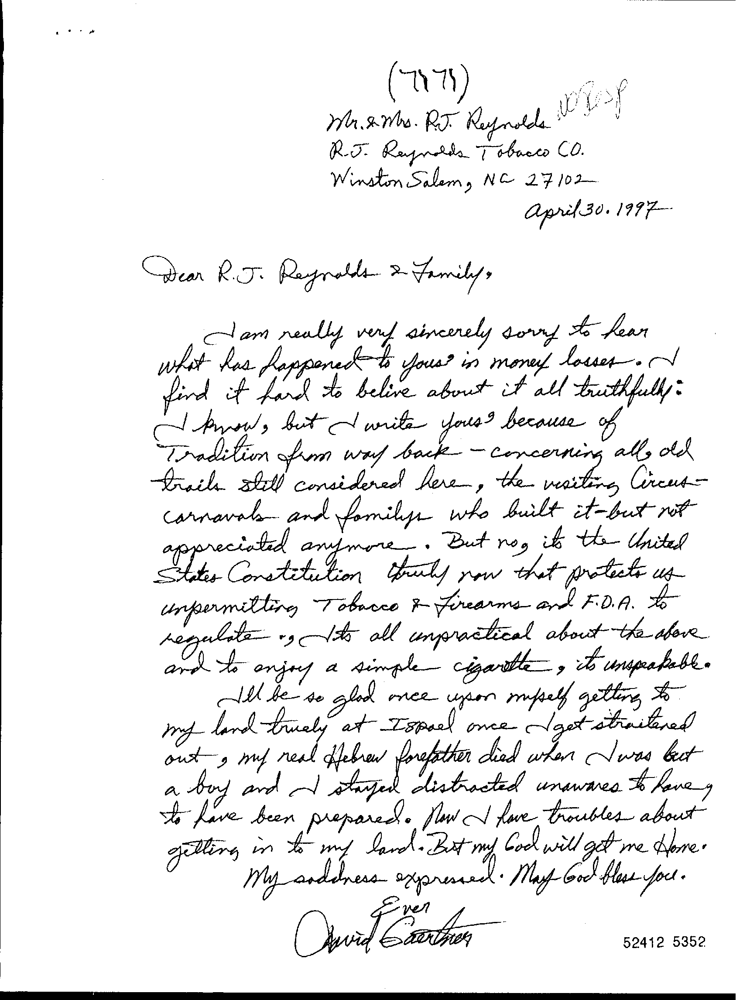 (7171)
No Resp
Mr. & Mrs. R.J. Reynolds
R.J. Reynolds Tobacco CO.
Winston Salem, NC 27102
April 30. 1997
Dear R.J. Reynolds & Family,
I am really very sincerely sorry to hear
what has happened to yous' in money losses. I
find it hard to belive about it all truthfully:
I know, but I write yous' because of
Tradition from way back - concerning all, old
trails still considered here, the visiting Circus-
carnavals and familys who built it - but not
appreciated anymore. But no, its the United
States Constitution truly now that protects us
unpermitting Tobacco & Firearms and F.D.A. to
regulate., Its all unpractical about the above
and to enjoy a simple cigarette, its unspeakable.
Ill be so glad once upon myself getting to
my land truely at Israel once I get straitened
out, my real Hebrew forefather died when I was but
a boy and I stayed distracted unawares to have,
to have been prepared. Now I have troubles about
getting in to my land. But my God will get me Home.
My saddness expressed. May God bless you.
Ever
David Gaertner
52412 5352